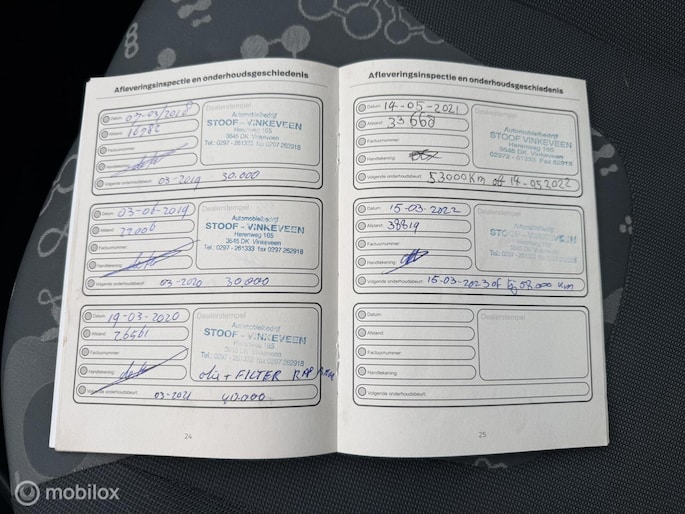 Afleveringsinspectie en onderhoudsgeschiedenis
Datum: 07-03/2018
Afstand: 16982
Factuurnummer:
Handtekening:
Volgende onderhoudsbeurt: 03-2019 30.000
Dealerstempel
Automobielbedrijf
STOOF - VINKEVEEN
Herenweg 165
3645 DK Vinkeveen
Tel.: 0297 - 261333 fax 0297 262918
Datum: 03-06-2019
Afstand: 22006
Factuurnummer:
Handtekening:
Volgende onderhoudsbeurt: 03-2020 30.000
Automobielbedrijf
STOOF - VINKEVEEN
Herenweg 165
3645 DK Vinkeveen
Tel.: 0297 - 261333 fax 0297 262918
Datum: 19-03-2020
Afstand: 26561
Factuurnummer:
Handtekening:
Volgende onderhoudsbeurt: 03-2021
Dealerstempel
Automobielbedrijf
STOOF - VINKEVEEN
Herenweg 165
Tel.: 0297 - 261333 fax 0297 262918
olie + FILTER
24
Afleveringsinspectie en onderhoudsgeschiedenis
Datum: 14-05-2021
Afstand: 33668
Factuurnummer:
Handtekening:
Volgende onderhoudsbeurt: 53000 Km off 14-05-2022
Automobielbedrijf
STOOF VINKEVEEN
Herenweg 165
3645 DK Vinkeveen
Datum: 15-03-2022
Afstand: 38819
Factuurnummer:
Handtekening:
Volgende onderhoudsbeurt: 15-03-2023 of bij 58.000 km
Datum:
Afstand:
Factuurnummer:
Handtekening:
Volgende onderhoudsbeurt:
Dealerstempel
25
mobilox